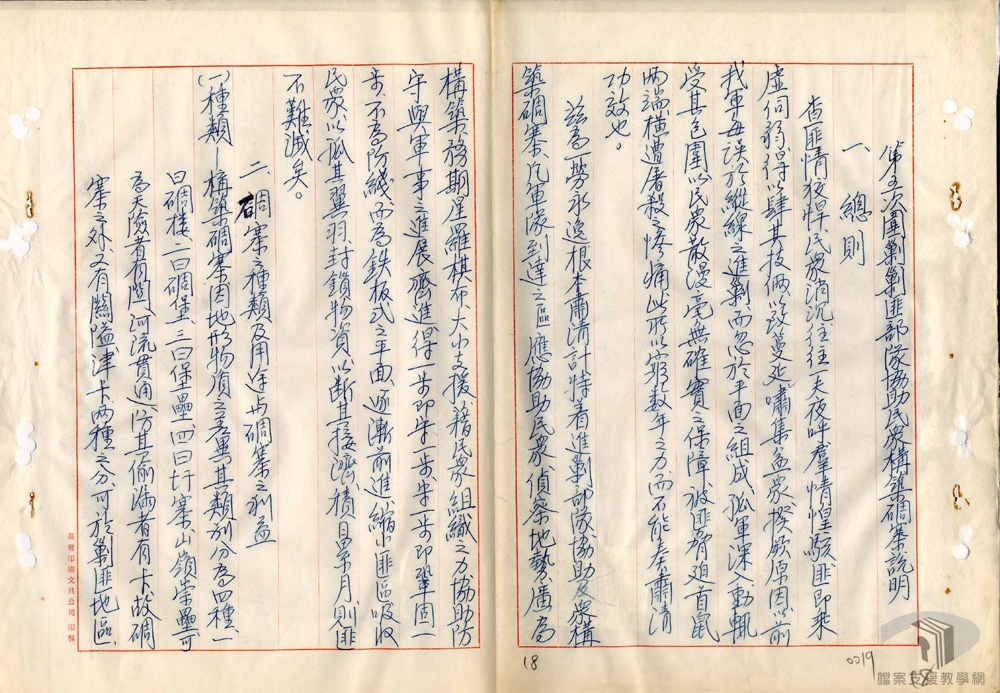 第五次圍剿剿匪部隊協助民衆構築碉寨說明
一、總則
查匪情猖悍民衆消沉往往一夫夜呼羣情惶駭匪即乘
虛伺弱得以肆其技倆以致蔓延嘯集益衆揆厥原因以前
我軍毎誤於縱線之進剿而忽於平面之組成孤軍深入動輒
受其包圍以民衆散漫毫無確實之保障被匪脅迫首鼠
兩端橫遭屠殺之慘痛此所以窮數年之力而不能奏肅清
功效也。
茲為一勞永逸根本肅清計特着進剿部隊協助民衆構
築碉寨凡軍隊到達之區應協助民衆偵察地勢廣為
構築務期星羅棋布大小支援藉民衆組織之力協助防
守與軍事之進展齊進得一步即守一步步一步即鞏固一
步不為防綫而為鉄板式之平面逐漸前進縮小匪區吸收
民衆以孤其翼羽封鎖物資以断其接濟積日累月則匪
不難滅矣。
二、碉寨之種類及用途與碉寨之利益
(一)種類—構築碉寨因地形物質之差異其類別分為四種、一
曰碉樓二曰碉堡三曰堡壘四曰圩寨山嶺崇疊可
為天險者有關河流貫通防其偷漏者有卡故碉
寨之外又有關隘津卡兩種之分可於剿匪地區
長興印刷文具公司印製
18
0019
18
檔案支援教學網